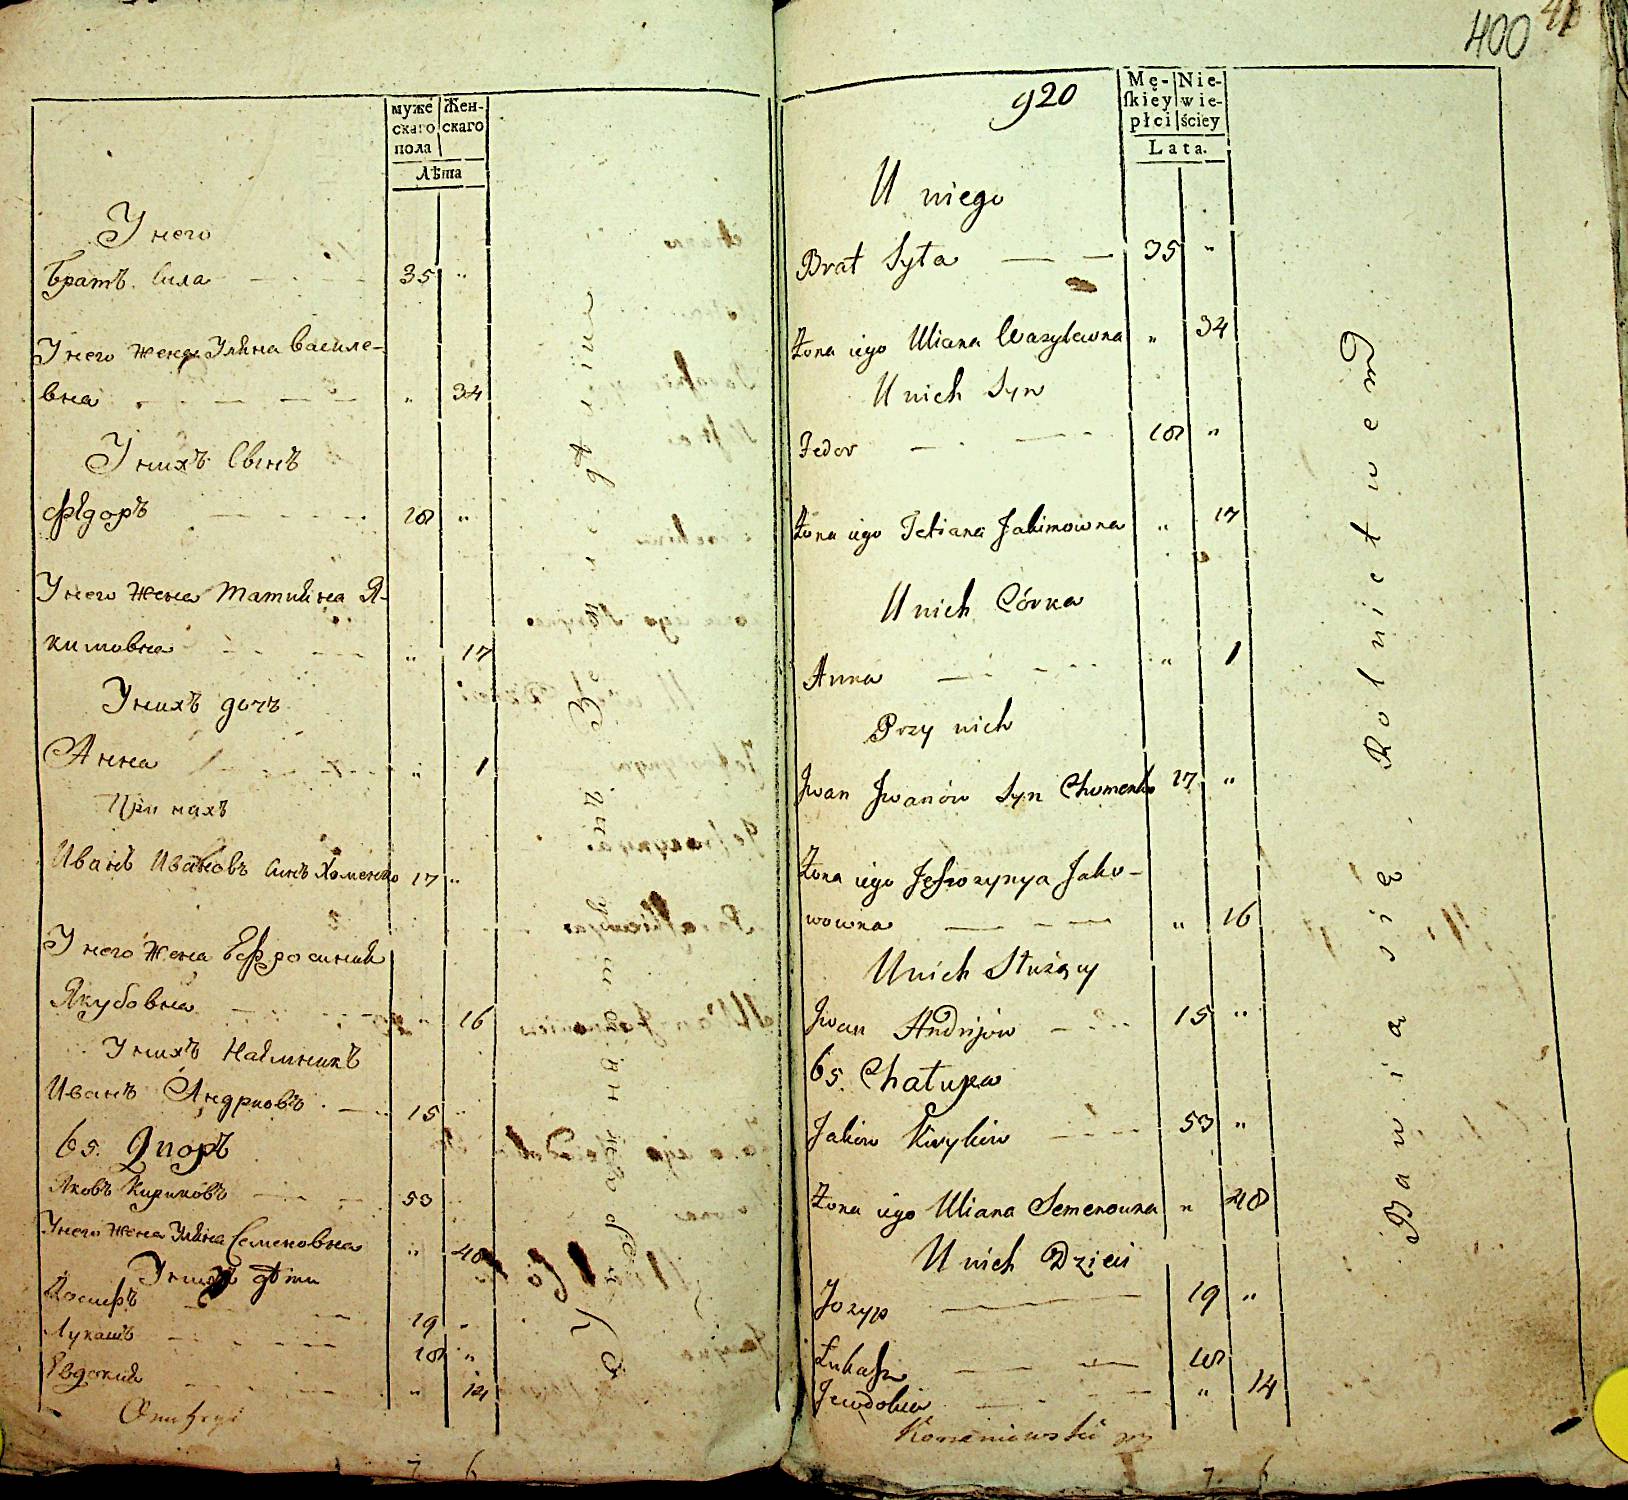 муже
скаго
пола
Жен-
скаго
Лѣта
У него
братъ Сила 35 "
У него жена Улiяна Василе-
вна " 34
У нихъ Сынъ
Өедоръ 18 "
У него жена Татиана Я-
кимовна " 17
У нихъ дочъ
Анна " 1
При нихъ
Иванъ Ивановъ Синъ Хоменко 17 "
У него жена Ефросиния
Якубовна " 16
У нихъ Наймникъ
Иванъ Андриовъ 15 "
65. Двор
Яковъ Кириковъ 53
У него жена Улiяна Семеновна " 48
У нихъ дѣти
Иосифъ 19 "
Лукашъ 18 "
Евдокия " 14
7 6
400
920
Mę-
ſkiey
płci
Nie-
wie-
ściey
Lata.
U niego
Brat Syła 35 "
Żona iego Uliana Wasylewna " 34
U nich Syn
Fedor 18 "
Żona iego Tetiana Jakimowna " 17
U nich Córka
Anna " 1
Przy nich
Jwan Jwanów Syn Chomenko 17 "
Żona iego Jefrozynya Jako-
wowna " 16
U nich Służący
Jwan Andrijów 15 "
65. Chałupa
Jaków Kirykiów 53 "
Żona iego Uliana Semenowna " 48
U nich Dzieci
Jozyp 19 "
Łukaſz 18
Jewdokia " 14
7. 6
Bawią się Rolnictwem